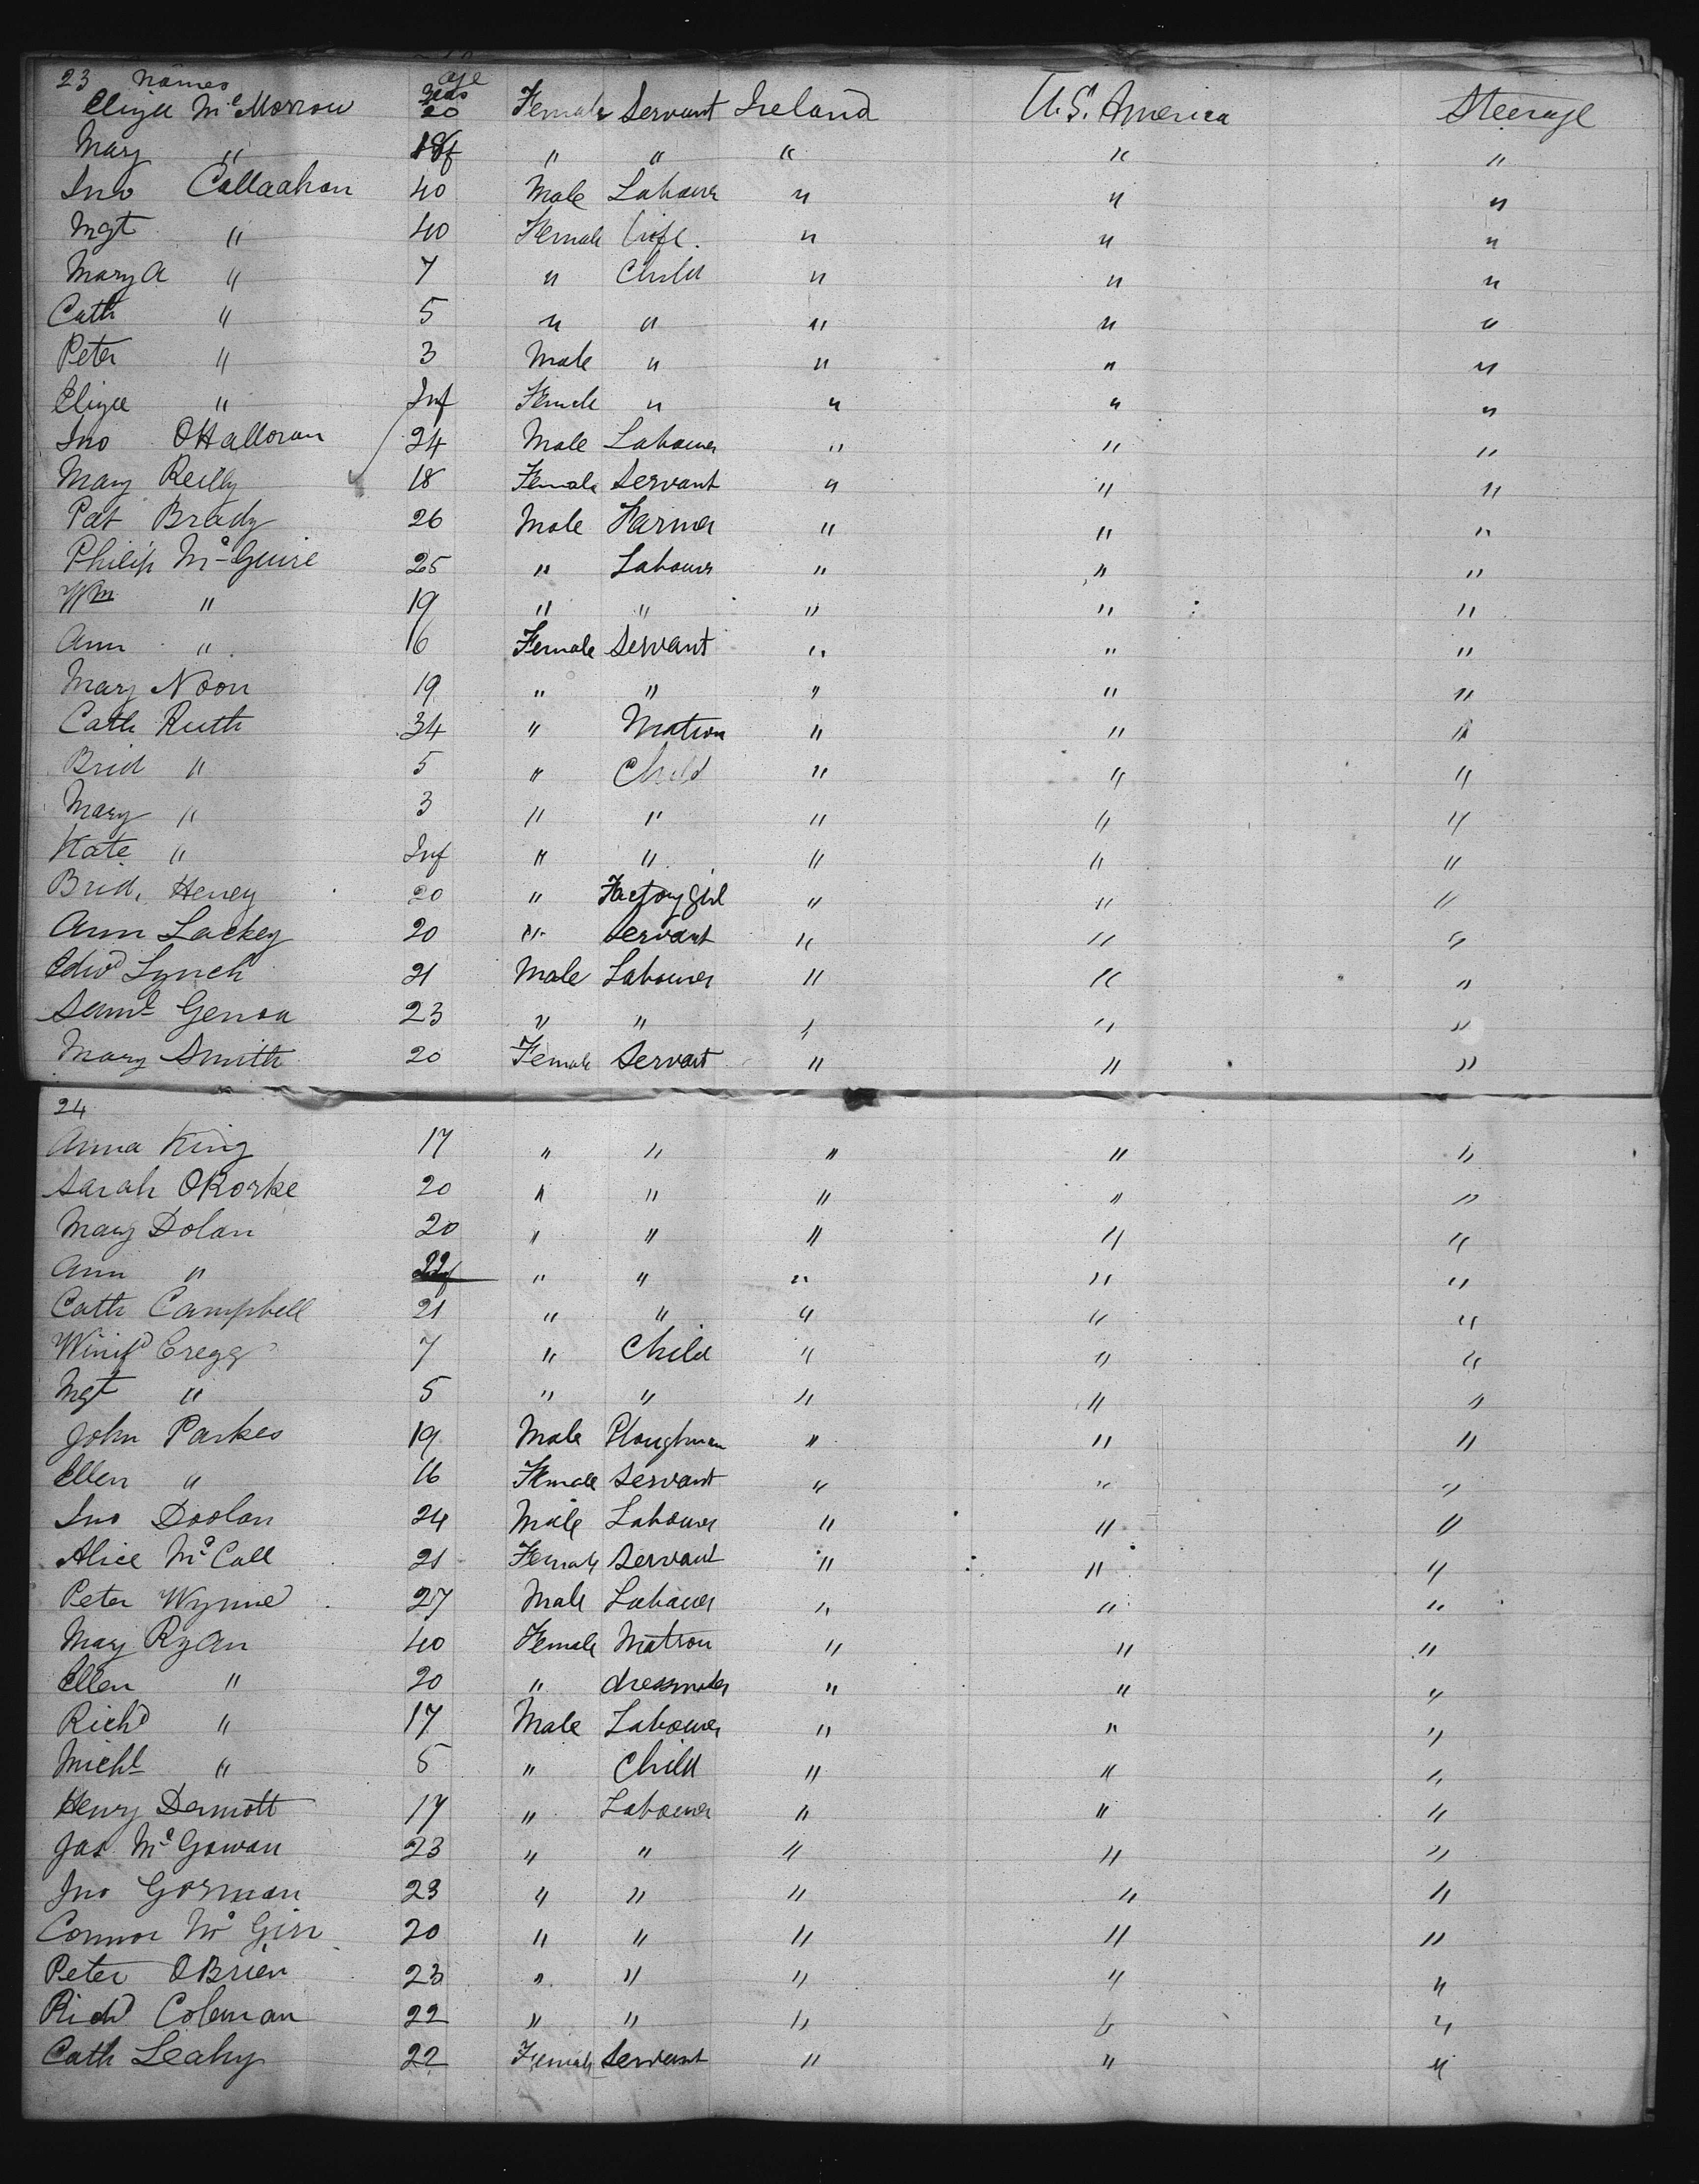 23 Names age
years
Eliza McMorrow 20 Female Servant Ireland U.S. America Steerage
Mary " 18 " " " " "
Jno Callaahan 40 Male Labourer " " "
Mgt " 40 Female Wife " " "
Mary A " 7 " Child " " "
Cath " 5 " " " " "
Peter " 3 Male " " " "
Eliza " Inf Female " " " "
Jno OHalloran 24 Male Labourer " " "
Mary Reilly 18 Female Servant " " "
Pat Brady 26 Male Farmer " " "
Philip McGuire 25 " Labourer " " "
Wm " 19 " " " " "
Ann " 16 Female Servant " " "
Mary Noon 19 " " " " "
Cath Ruth 34 " Matron " " "
Brid " 5 " Child " " "
Mary " 3 " " " " "
Kate " Inf " " " " "
Brid. Heney 20 " Factory girl " " "
Ann Lackey 20 " Servant " " "
Edwd Lynch 21 Male Labourer " " "
Saml Genoa 23 " " " " "
Mary Smith 20 Female Servant " " "
24
Anna King 17 " " " " "
Sarah ORorke 20 " " " " "
Mary Dolan 20 " " " " "
Ann " 22 " " " " "
Cath Campbell 21 " " " " "
Winifd Cregg 7 " Child " " "
Mgt " 5 " " " " "
John Parkes 19 Male Ploughman " " "
Ellen " 16 Female Servant " " "
Jno Doolan 24 Male Labourer " " "
Alice McCall 21 Female Servant " " "
Peter Wynne 27 Male Labourer " " "
Mary Ryan 40 Female Matron " " "
Ellen " 20 " dressmaker " " "
Richd " 17 Male Labourer " " "
Michl " 5 " Child " " "
Henry Dermott 17 " Labourer " " "
Jas McGowan 23 " " " " "
Jno Gorman 23 " " " " "
Connor McGirr 20 " " " " "
Peter OBrien 23 " " " " "
Richd Coleman 22 " " " " "
Cath Leahy 22 Female Servant " " "